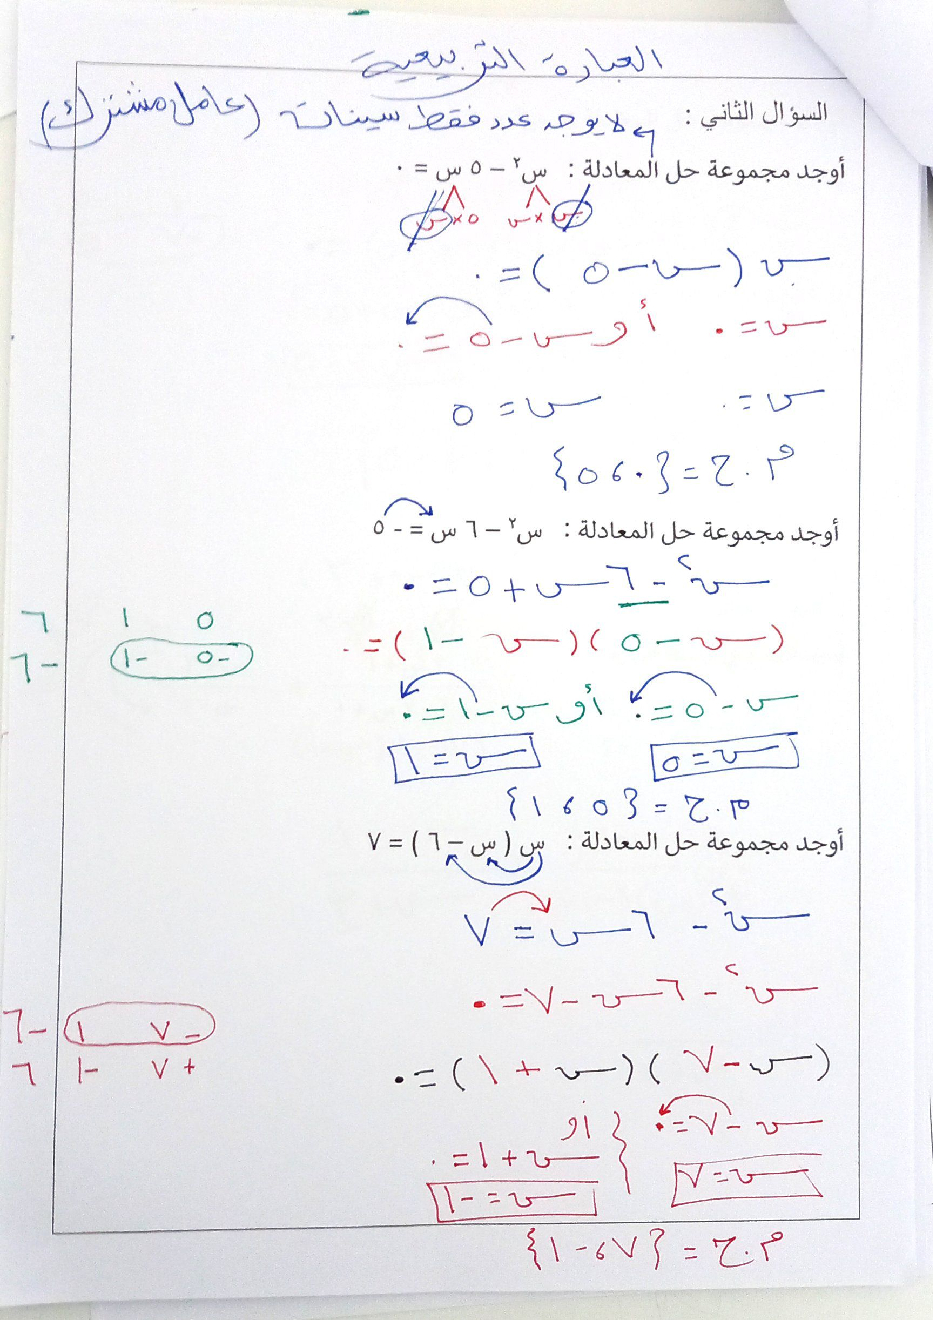 العبارة التربيعية
السؤال الثاني :
لا يوجد عدد فقط سينات (عامل مشترك)
أوجد مجموعة حل المعادلة : س٢ – ٥ س = ٠
س × س ٥ × س
س (س – ٥) = ٠
س = ٠ أو س – ٥ = ٠
س = ٠ س = ٥
م . ح = {٠ ، ٥}
أوجد مجموعة حل المعادلة : س٢ – ٦ س = - ٥
س٢ – ٦ س + ٥ = ٠
٥ ١ ٦
(س – ٥) (س – ١) = ٠
-٥ -١ -٦
س – ٥ = ٠ أو س – ١ = ٠
س = ٥ س = ١
م . ح = {٥ ، ١}
أوجد مجموعة حل المعادلة : س ( س – ٦ ) = ٧
س٢ – ٦ س = ٧
س٢ – ٦ س – ٧ = ٠
-٧ ١ -٦
(س – ٧) (س + ١) = ٠
+٧ -١ ٦
س – ٧ = ٠ أو
س + ١ = ٠
س = ٧ س = -١
م . ح = {٧ ، -١}